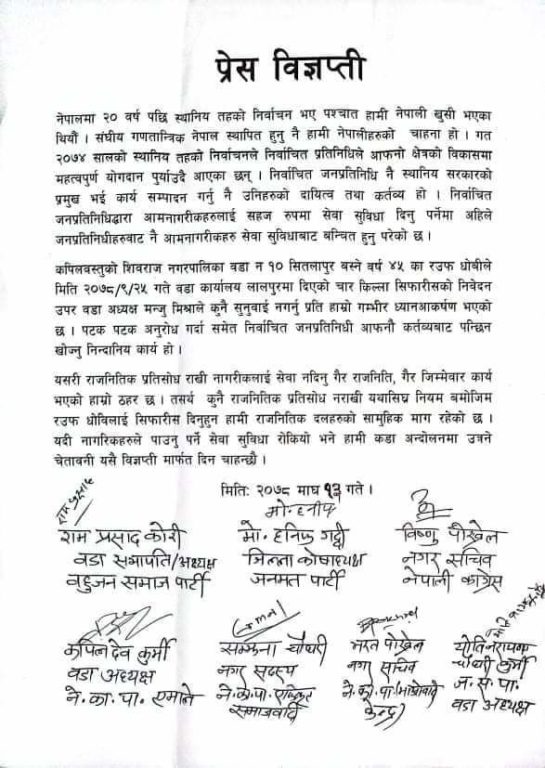 प्रेस विज्ञप्ती
नेपालमा २० बर्ष पछि स्थानिय तहको निर्वाचन भए पश्चात हामी नेपाली खुसी भएका
थियौं । संघीय गणतान्त्रिक नेपाल स्थापित हुनु नै हामी नेपालीहरुको चाहना हो । गत
२०७४ सालको स्थानिय तहको निर्वाचनले निर्वाचित प्रतिनिधिले आफनो क्षेत्रको विकासमा
महत्वपुर्ण योगदान पुर्याउदै आएका छन् । निर्वाचित जनप्रतिनिधि नै स्थानिय सरकारको
प्रमुख भई कार्य सम्पादन गर्नु नै उनिहरुको दायित्व तथा कर्तव्य हो । निर्वाचित
जनप्रतिनिधिद्धारा आमनागरीकहरुलाई सहज रुपमा सेवा सुविधा दिनु पर्नेमा अहिले
जनप्रतिनिधीहरुबाट नै आमनागरीकहरु सेवा सुविधाबाट बन्चित हुनु परेको छ ।
कपिलबस्तुको शिवराज नगरपालिका वडा न १० सितलापुर बस्ने वर्ष ४५ का रउफ धोबीले
मिति २०७८/९/२५ गते वडा कार्यालय लालपुरमा दिएको चार किल्ला सिफारीसको निवेदन
उपर वडा अध्यक्ष मन्जु मिश्राले कुनै सुनुवाई नगर्नु प्रति हाम्रो गम्भीर ध्यानआकर्षण भएको
छ । पटक पटक अनुरोध गर्दा समेत निर्वाचित जनप्रतिनिधी आफनौ कर्तव्यबाट पन्छिन
खोज्नु निन्दानिय कार्य हो ।
यसरी राजनितिक प्रतिसोध राखी नागरीकलाई सेवा नदिनु गैर राजनिति, गैर जिम्मेवार कार्य
भएको हाम्रो ठहर छ । तसर्थ कुनै राजनितिक प्रतिसोध नराखी यथासिघ्र नियम बमोजिम
रउफ धोविलाई सिफारीस दिनुहुन हामी राजनितिक दलहरुको सामुहिक माग रहेको छ ।
यदी नागरिकहरुले पाउनु पर्ने सेवा सुविधा रोकियो भने हामी कडा अन्दोलनमा उत्रने
चेतावनी यसै विज्ञप्ती मार्फत दिन चाहन्छौ ।
मितिः २०७८ माघ १३ गते ।
मो. हनीफ
राम प्रसाद कोरी मो. हनिफ गद्दी विष्णु पौखेल
वडा सभापति/अध्यक्ष जिल्ला कोषाध्यक्ष नगर सचिव
बहुजन समाज पार्टी जनमत पार्टी नेपाली काग्रेस
कपिलदेव कुर्मी सम्झना चौधरी भरत पोखेल
वडा अध्यक्ष नगर सदस्य नगर सचिव चौधरी कुर्मी
ने. का. पा. एमाले ने. क. पा. एकिकृत ने. क. पा. माओवादी ज. स. पा.
समाजवादी केन्द्र वडा अध्यक्ष